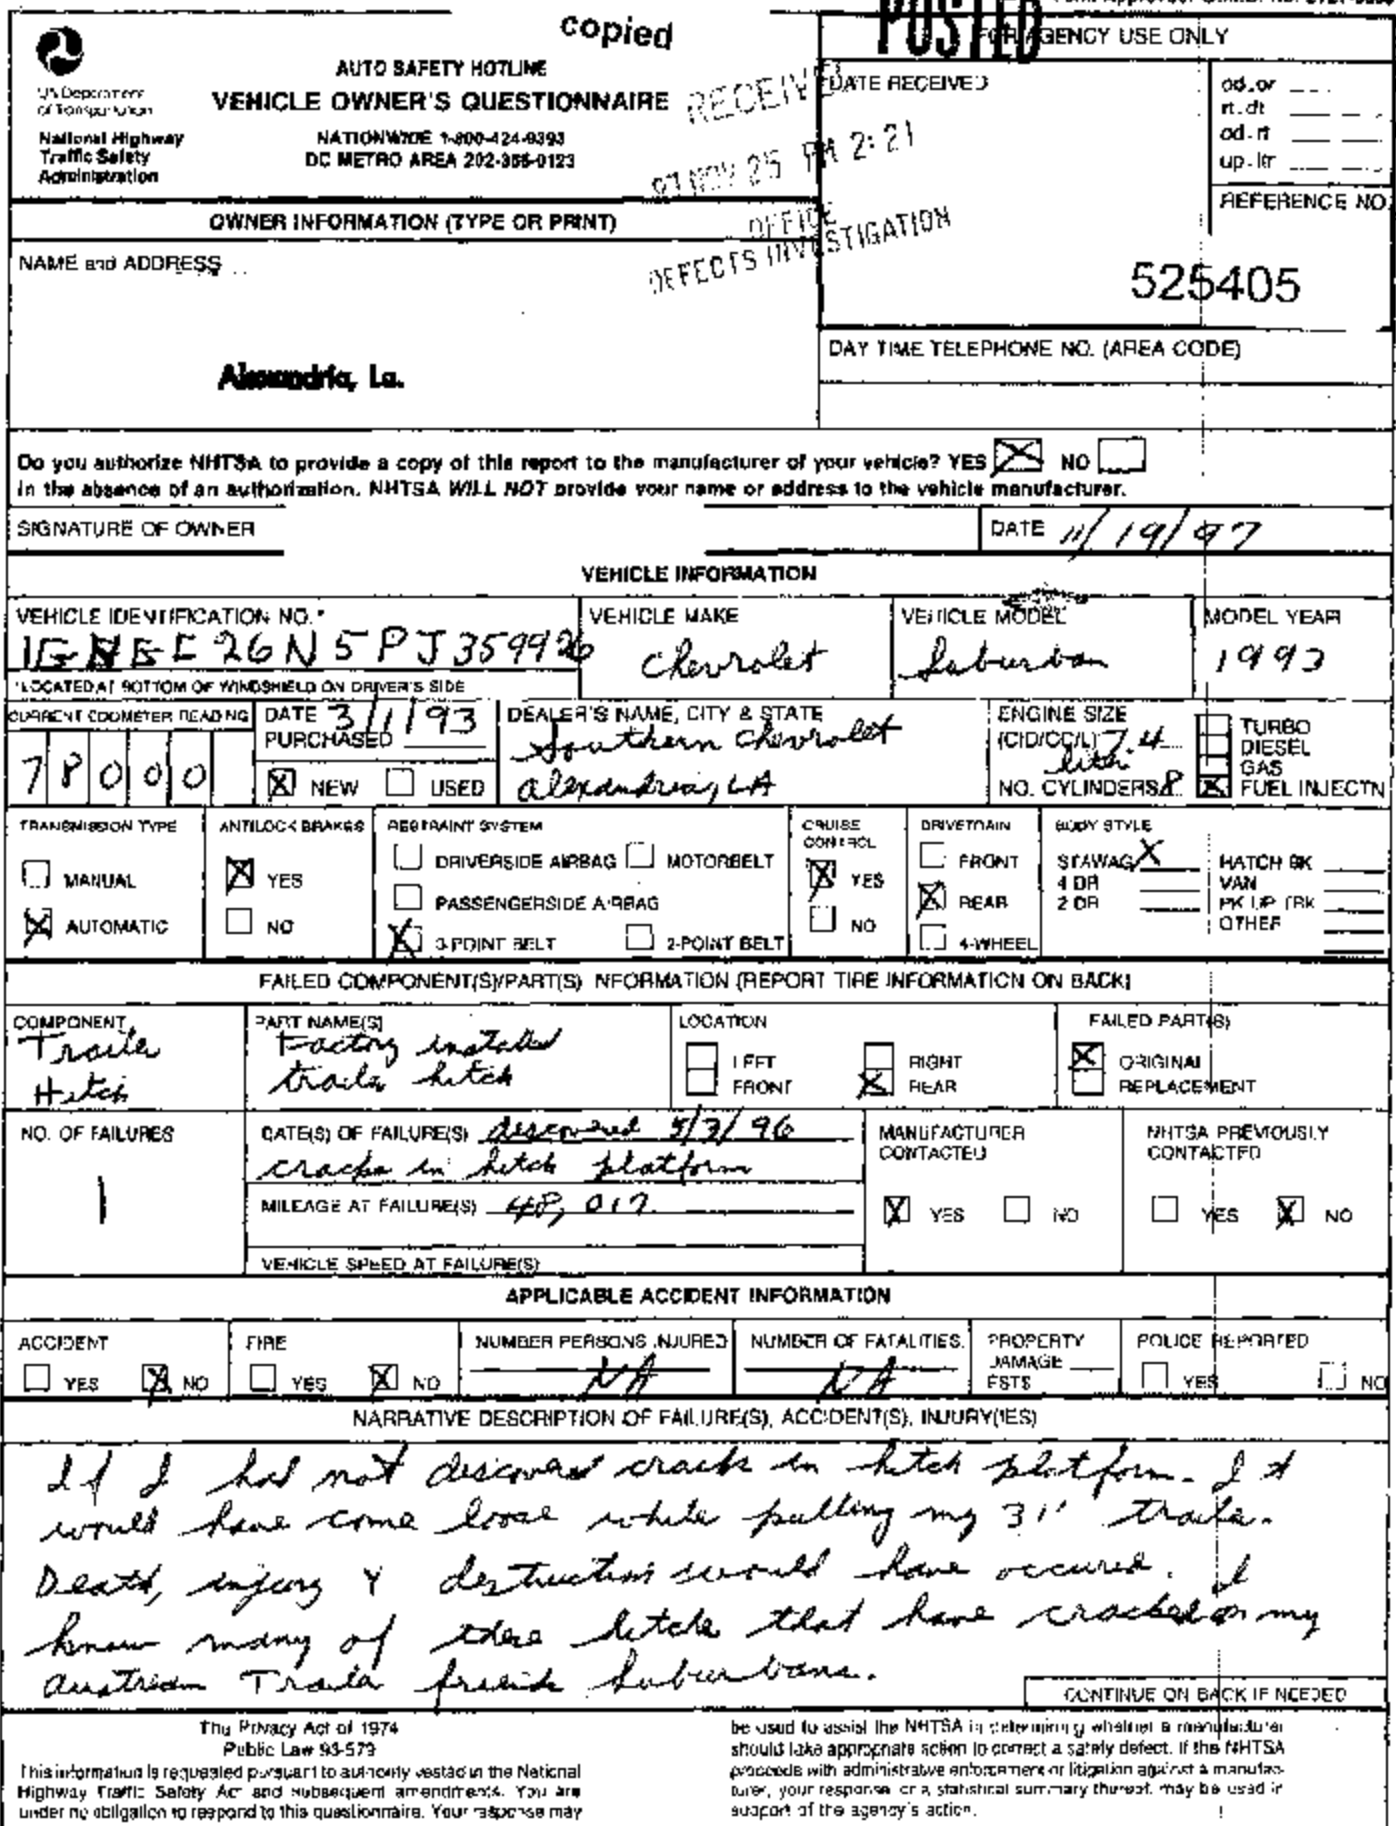 copied
POSTED
FOR AGENCY USE ONLY
US Department
of Transportation
National Highway
Traffic Safety
Administration
AUTO SAFETY HOTLINE
VEHICLE OWNER'S QUESTIONNAIRE
NATIONWIDE 1-800-424-9393
DC METRO AREA 202-366-0123
RECEIV
97 NOV 25 PM 2:21
OFFICE
DEFECTS INVESTIGATION
DATE RECEIVED
od.or
rt.dt
od-rt
up-ltr
REFERENCE NO
525405
OWNER INFORMATION (TYPE OR PRINT)
NAME and ADDRESS
Alexandria, La.
DAY TIME TELEPHONE NO. (AREA CODE)
Do you authorize NHTSA to provide a copy of this report to the manufacturer of your vehicle? YES NO
In the absence of an authorization, NHTSA WILL NOT provide your name or address to the vehicle manufacturer.
SIGNATURE OF OWNER
DATE 11/19/97
VEHICLE INFORMATION
VEHICLE IDENTIFICATION NO.*
VEHICLE MAKE
VEHICLE MODEL
MODEL YEAR
Chevrolet
Suburban
1993
*LOCATED AT BOTTOM OF WINDSHIELD ON DRIVER'S SIDE
CURRENT ODOMETER READING
78000
DATE PURCHASED 3/1/93
NEW USED
DEALER'S NAME, CITY & STATE
Southern Chevrolet
Alexandria, LA
ENGINE SIZE
(CID/CC/L) 7.4
NO. CYLINDERS 8
TURBO
DIESEL
GAS
FUEL INJECTN
TRANSMISSION TYPE
MANUAL
AUTOMATIC
ANTILOCK BRAKES
YES
NO
RESTRAINT SYSTEM
DRIVERSIDE AIRBAG MOTORBELT
PASSENGERSIDE AIRBAG
3-POINT BELT 2-POINT BELT
CRUISE
CONTROL
YES
NO
DRIVETRAIN
FRONT
REAR
4-WHEEL
BODY STYLE
STAWAG HATCH BK
4 DR VAN
2 DR PK UP TRK
OTHER
FAILED COMPONENT(S)/PART(S) INFORMATION (REPORT TIRE INFORMATION ON BACK)
COMPONENT
Trailer
Hitch
PART NAME(S)
Factory installed
trailer hitch
LOCATION
LEFT RIGHT
FRONT REAR
FAILED PART(S)
ORIGINAL
REPLACEMENT
NO. OF FAILURES
1
DATE(S) OF FAILURE(S) discovered 5/3/96
cracks in hitch platform
MILEAGE AT FAILURE(S) 48,017
VEHICLE SPEED AT FAILURE(S)
MANUFACTURER
CONTACTED
YES NO
NHTSA PREVIOUSLY
CONTACTED
YES NO
APPLICABLE ACCIDENT INFORMATION
ACCIDENT
YES NO
FIRE
YES NO
NUMBER PERSONS INJURED
NA
NUMBER OF FATALITIES
NA
PROPERTY
DAMAGE
ESTS
POLICE REPORTED
YES NO
NARRATIVE DESCRIPTION OF FAILURE(S), ACCIDENT(S), INJURY(IES)
If I had not discovered crack in hitch platform. It
would have come loose while pulling my 31' trailer.
Death, injury & destruction would have occured. I
know many of these hitchs that have cracked on my
Airstream Trailer friends Suburbans.
CONTINUE ON BACK IF NEEDED
The Privacy Act of 1974
Public Law 93-579
This information is requested pursuant to authority vested in the National
Highway Traffic Safety Act and subsequent amendments. You are
under no obligation to respond to this questionnaire. Your response may
be used to assist the NHTSA in determining whether a manufacturer
should take appropriate action to correct a safety defect. If the NHTSA
proceeds with administrative enforcement or litigation against a manufac-
turer, your response, or a statistical summary thereof, may be used in
support of the agency's action.